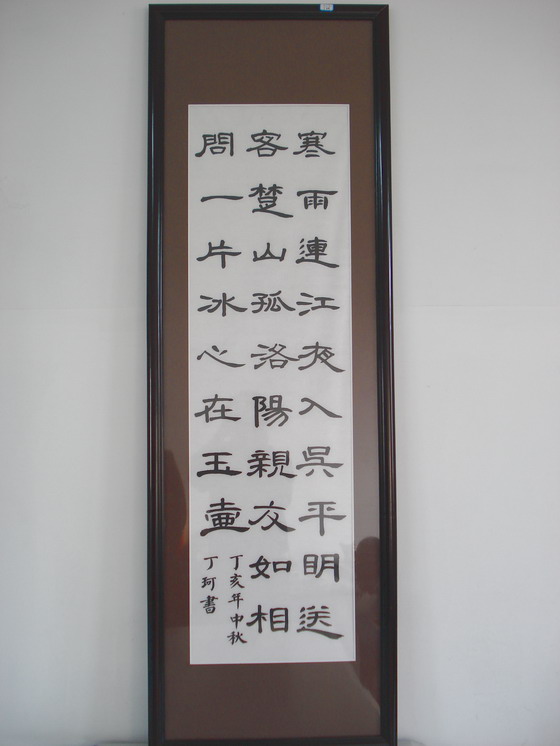 寒雨連江夜入吳平明送
客楚山孤洛陽親友如相
問一片冰心在玉壺
丁亥年中秋
丁珂書